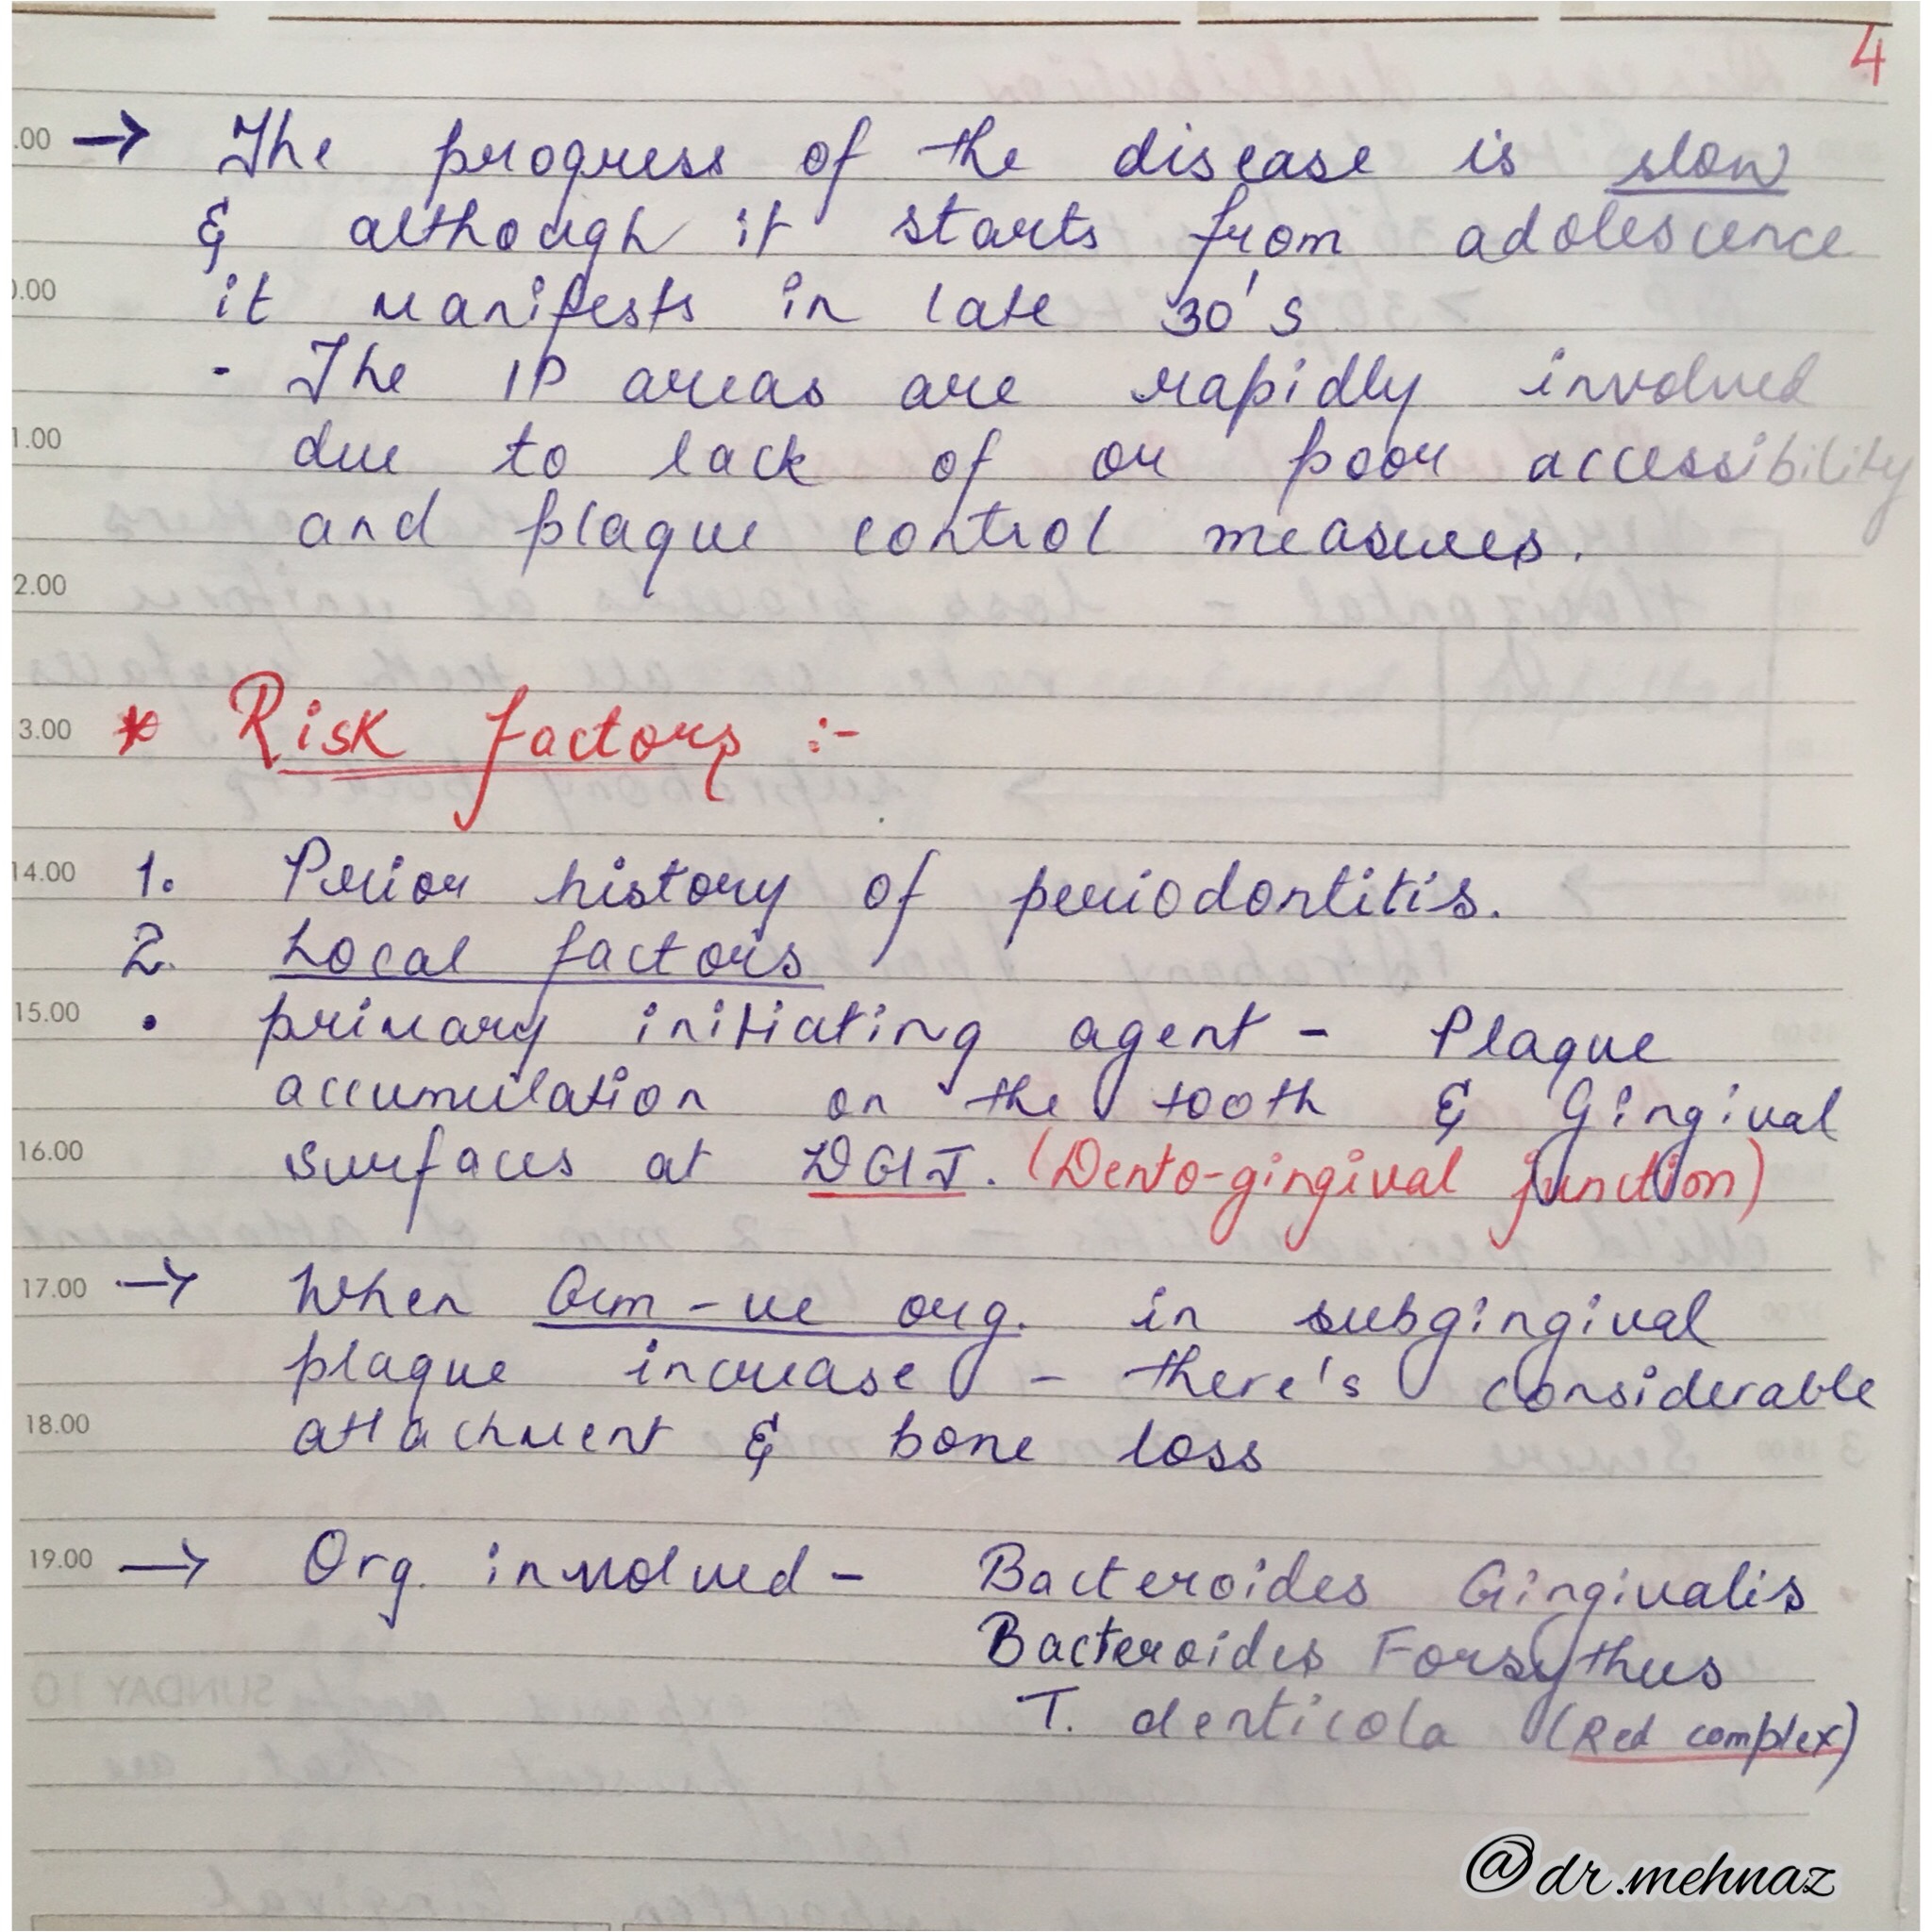 4
.00 → The progress of the disease is slow
& although it starts from adolescence
0.00 it manifests in late 30's
- The IP areas are rapidly involved
1.00 due to lack of or poor accessibility
and plaque control measures.
2.00
13.00 * Risk factors :-
14.00 1. Prior history of periodontitis.
2. Local factors
15.00 • primary initiating agent - Plaque
accumulation on the tooth & Gingival
16.00 surfaces at DGJ. (Dento-gingival junction)
17.00 → When Gm -ve org. in subgingival
plaque increase - there's considerable
18.00 attachment & bone loss
19.00 → Org. involved - Bacteroides Gingivalis
Bacteroides Forsythus
T. denticola (Red complex)
@dr.mehnaz